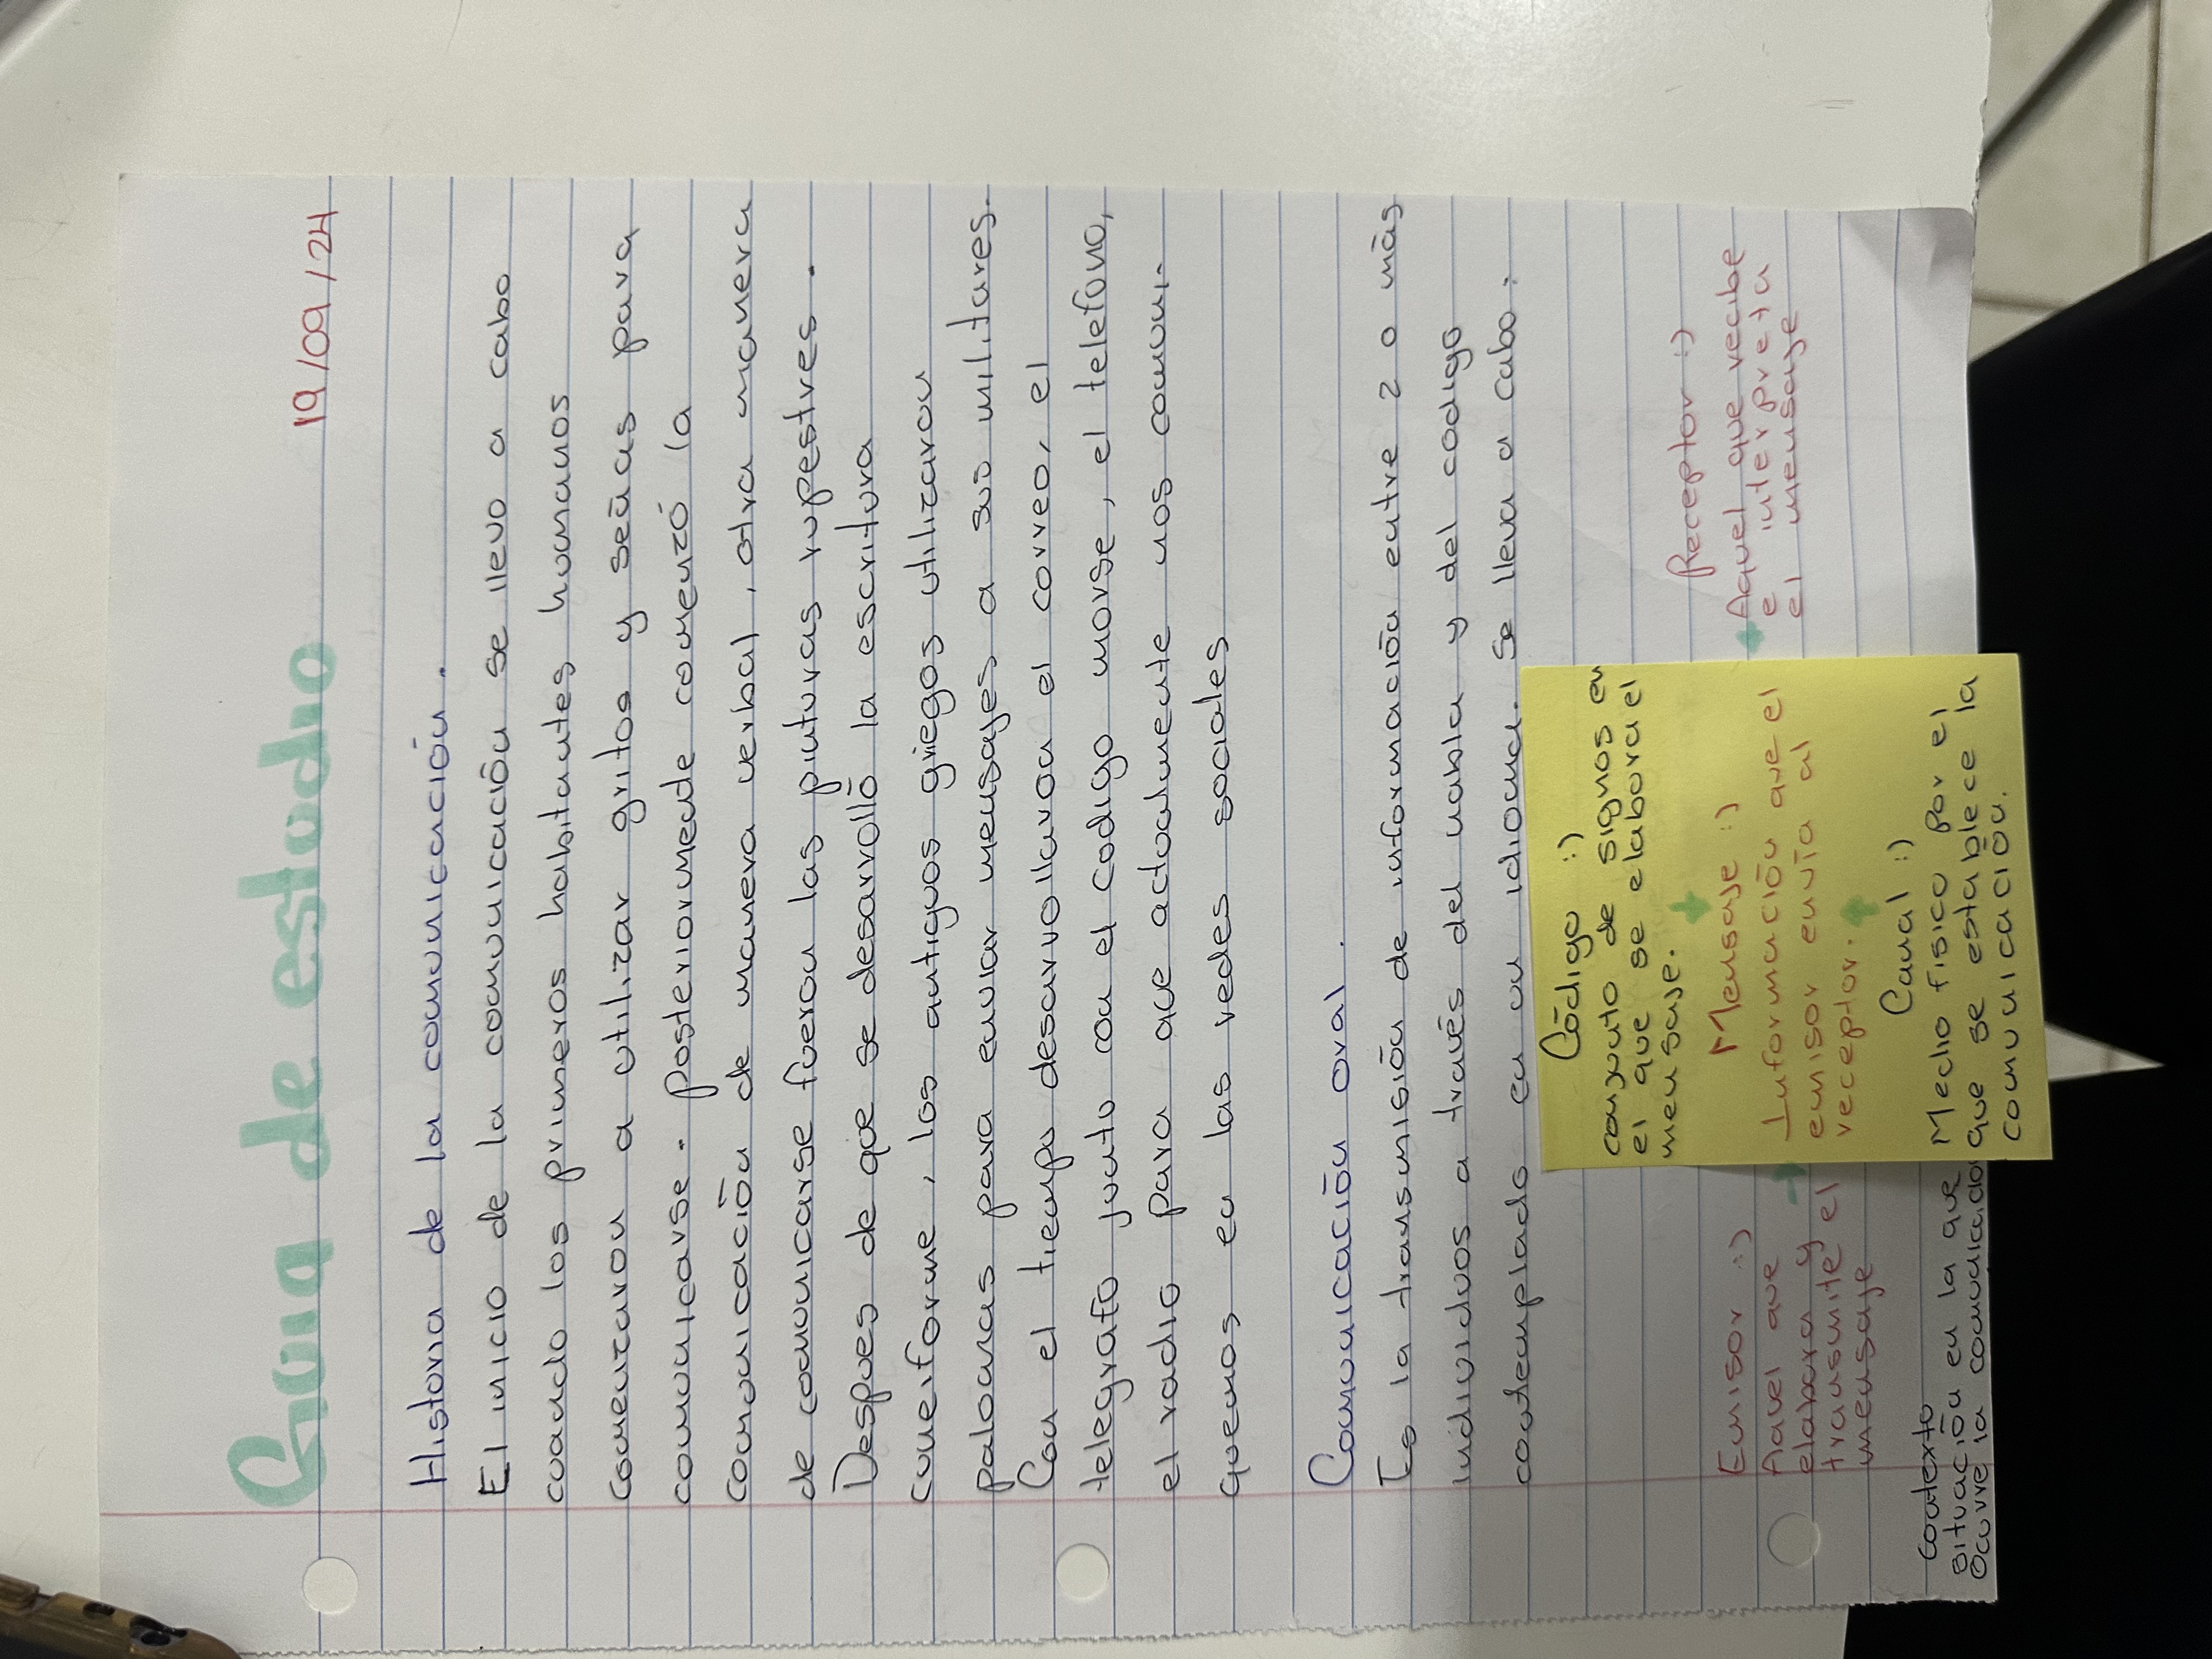 Guia de estudio
19/09/24
Historia de la comunicación.
El inicio de la comunicación se llevo a cabo
cuando los primeros habitantes humanos
comenzaron a utilizar gritos y señas para
comunicarse. posteriormente comenzó la
comunicación de manera verbal, otra manera
de comunicarse fueron las pinturas rupestres.
Despues de que se desarrolló la escritura
cuneiforme, los antiguos griegos utilizaron
palomas para enviar mensajes a sus militares.
Con el tiempo desarrollaron el correo, el
telegrafo junto con el codigo morse, el telefono,
el radio para que actualmente nos comuni-
quemos en las redes sociales
Comunicación oral.
Es la transmisión de información entre 2 o más
individuos a través del habla y del codigo
contemplado en un idioma. Se lleva a cabo:
Código :)
conjunto de signos en
el que se elabora el
mensaje.
Emisor :)
Aquel que
elabora y
transmite el
mensaje
Mensaje :)
Información que el
emisor envía al
receptor.
Receptor :)
Aquel que recibe
e interpreta
el mensaje
Canal :)
Medio fisico por el
que se establece la
comunicación.
Contexto
situación en la que
ocurre la comunicación